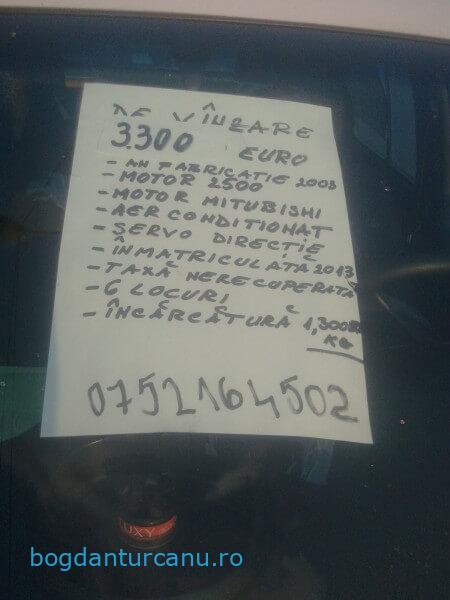 DE VÎNZARE
3.300 EURO
- AN FABRICATIE 2003
- MOTOR 2500
- MOTOR MITUBISHI
- AER CONDITIONAT
- SERVO DIRECȚIE
- ÎNMATRICULATĂ 2013
- TAXĂ NERECUPERATĂ
- 6 LOCURI
- ÎNCĂRCĂTURĂ 1,300
KG
0752164502
LUXY
bogdanturcanu.ro